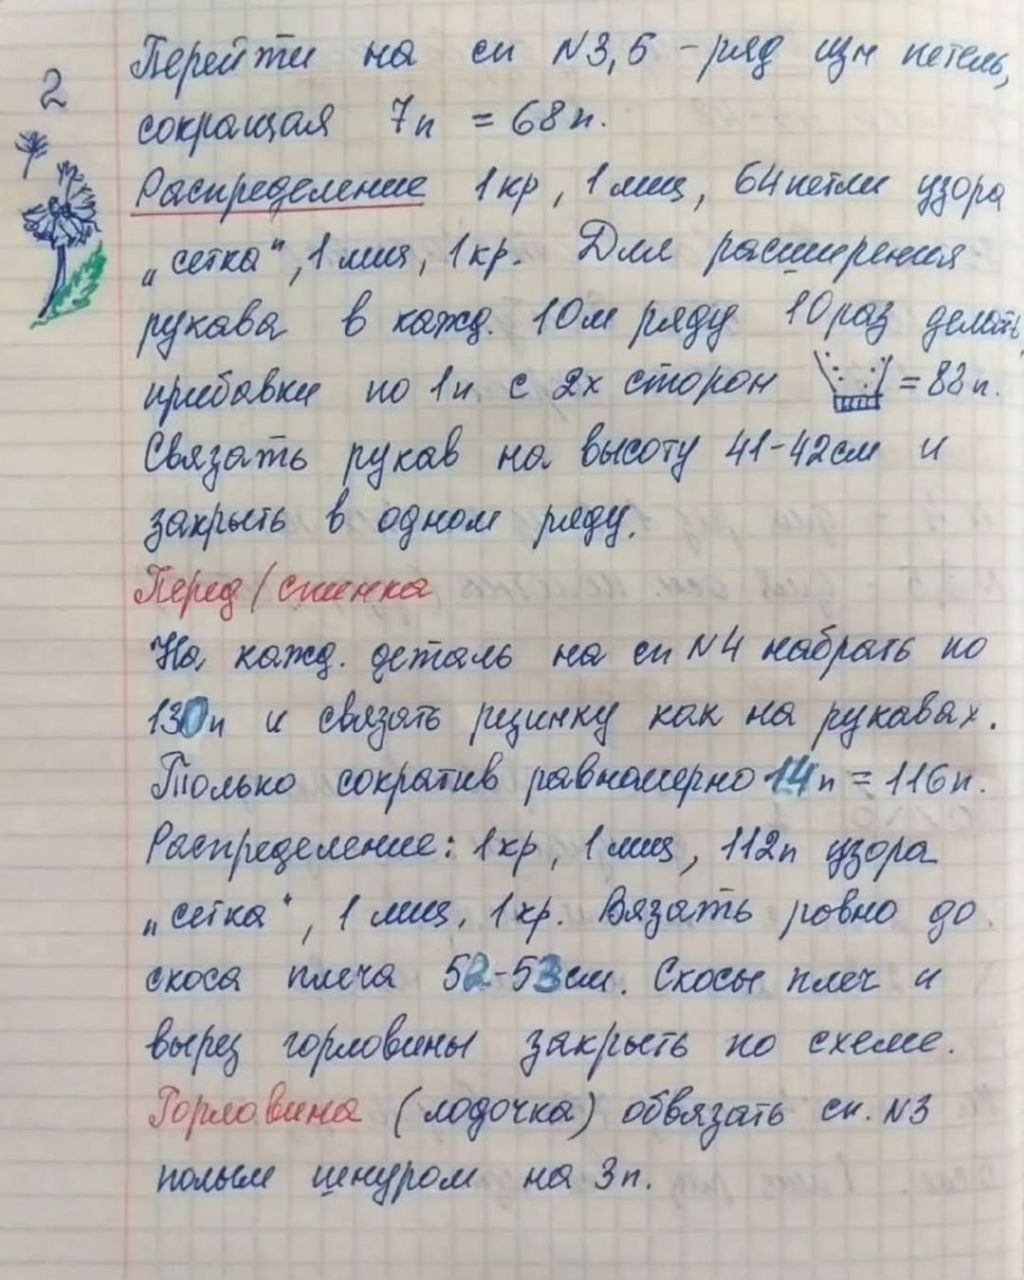 2
Перейти на сп N3,5 - ряд изн петель,
сокращая 7п = 68п.
Распределение 1кр, 1 лиц, 64 петли узора
„сетка“, 1 лиц, 1кр. Для расширения
рукава в кажд. 10м ряду 10 раз делать
прибавки по 1п. с 2х сторон = 88п.
Связать рукав на высоту 41-42см и
закрыть в одном ряду.
Перед/спинка
На кажд. деталь на сп N4 набрать по
130п и связать резинку как на рукавах.
Только сократив равномерно 14п = 116п.
Распределение: 1кр, 1 лиц, 112п узора
„сетка“, 1 лиц, 1кр. Вязать ровно до
скоса плеча 52-53см. Скосы плеч и
вырез горловины закрыть по схеме.
Горловина (лодочка) обвязать сп. N3
полым шнуром на 3п.